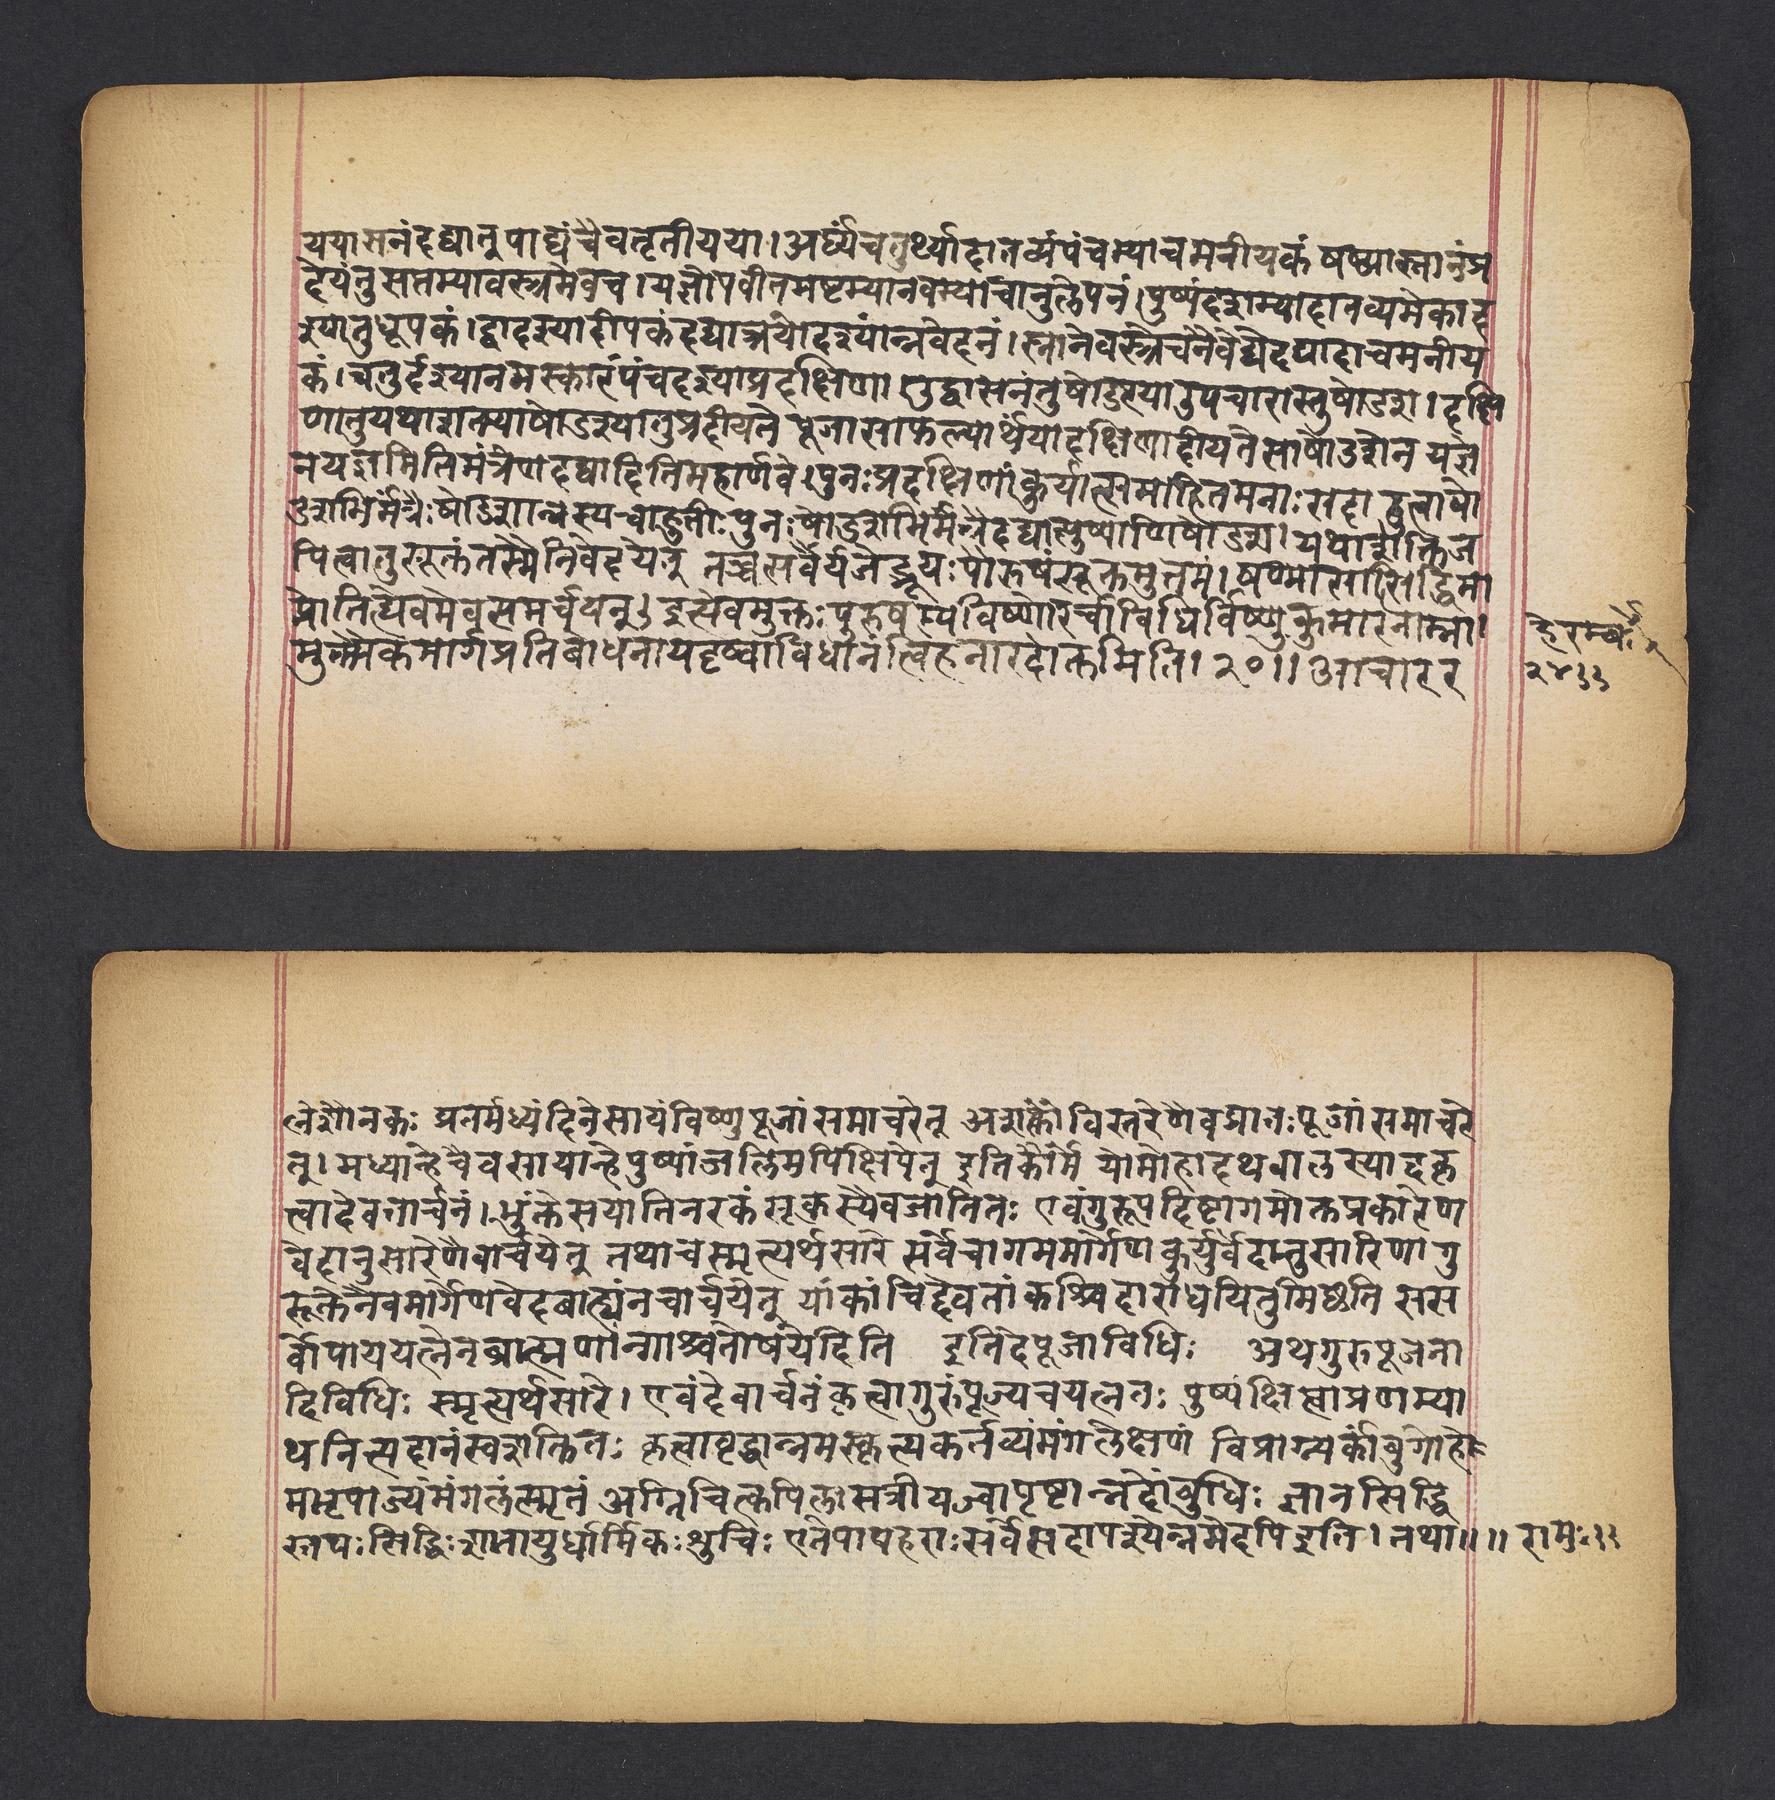 ययासनंदद्यात्तुपाद्यंचैवतृतीयया।अर्घ्यंचतुर्थ्यादातव्यंपंचम्याचमनीयकंषष्ठ्यास्नानंप्र
देयंतुसप्तम्यावस्त्रमेवच।यज्ञोपवीतमष्टम्यानवम्याचानुलेपनं।पुष्पंदशम्यादातव्यमेकाद
श्यातुधूपकं।द्वादश्यादीपकंदद्यात्त्रयोदश्यांनवेदनं।स्नानेवस्त्रेचनैवेद्येदद्यादाचमनीय
कं।चतुर्दश्यानमस्कारंपंचदश्याप्रदक्षिणा।उद्वासनंतुषोडश्याउपचारास्तुषोडश।दक्षि
णातुयथाशक्त्याषोडश्यातुप्रदीयते पूजासाफल्यार्थंयादक्षिणादीयतेसाषोडशेन यज्ञे
नयज्ञमितिमंत्रेणदद्यादितिमहार्णवे।पुनःप्रदक्षिणांकुर्यात्समाहितमनाःसदा हुत्वाषो
डशभिर्मंत्रैःषोडशान्नस्यचाहुतीःपुनःषोडशभिर्मंत्रैर्दद्यात्पुष्पाणिषोडश।यथाशक्तिज
पित्वातुसूक्तंतस्मैनिवेदयेत् तच्चसर्वैर्यजेद्भूयःपौरुषंसूक्तमुत्तमं।षण्मासात्सिद्धिमा
प्नोतित्येवमेवसमर्चयन्।इत्येवमुक्तःपुरुषस्यविष्णोरर्चाविधिर्विष्णुकुमारनाम्ना।
मुक्त्यैकमार्गप्रतिबोधनायदृष्वाविधानंत्विहनारदोक्तमिति।२०॥आचारर
हेरम्बः
२४
त्नेशौनकः प्रातर्मध्यंदिनेसायंविष्णुपूजांसमाचरेत् अशक्तोविस्तरेणैवप्रातःपूजांसमाचरे
त्।मध्यान्हेचैवसायान्हेपुष्पांजलिमपिक्षिपेत् इतिकौर्मे योमोहादथवालस्यादकृ
त्वादेवतार्चनं।भुंक्तेसयातिनरकंसूकरस्यैवजातितः एवंगुरूपदिष्टागमोक्तप्रकारेण
वेदानुसारेणैवार्चयेत् तथाचस्मृत्यर्थसारे सर्वेचागममार्गेणकुर्युर्वेदानुसारिणागु
रूक्तेनैवमार्गेणवेदबाह्यंनचार्चयेत् यांकांचिद्देवतांकश्चिदाराधयितुमिछति सस
र्वोपाययत्नेनब्राह्मणान्गाश्चतोषयेदिति इतिदेपूजाविधिः अथगुरुपूजना
दिविधिः स्मृत्यर्थसारे।एवंदेवार्चनंकृत्वागुरुंपूज्यचयत्नतः पुष्पंक्षिप्त्वाप्रणम्या
थनित्यदानंस्वशक्तितः कृत्वावृद्धान्नमस्कृत्यकर्तव्यंमंगलेक्षणं विप्राग्न्यर्कांबुगोहे
मनृपाज्यंमंगलंस्मृतं अग्निचित्कपिलासत्रीयज्वापृष्टान्महोंबुधिः ज्ञानसिद्धि
स्तपःसिद्धिःशतायुर्धार्मिकःश्रुचिः एतेपापहराःसर्वेसदापश्येन्नमेदपिइति।तथा॥॥ रामः